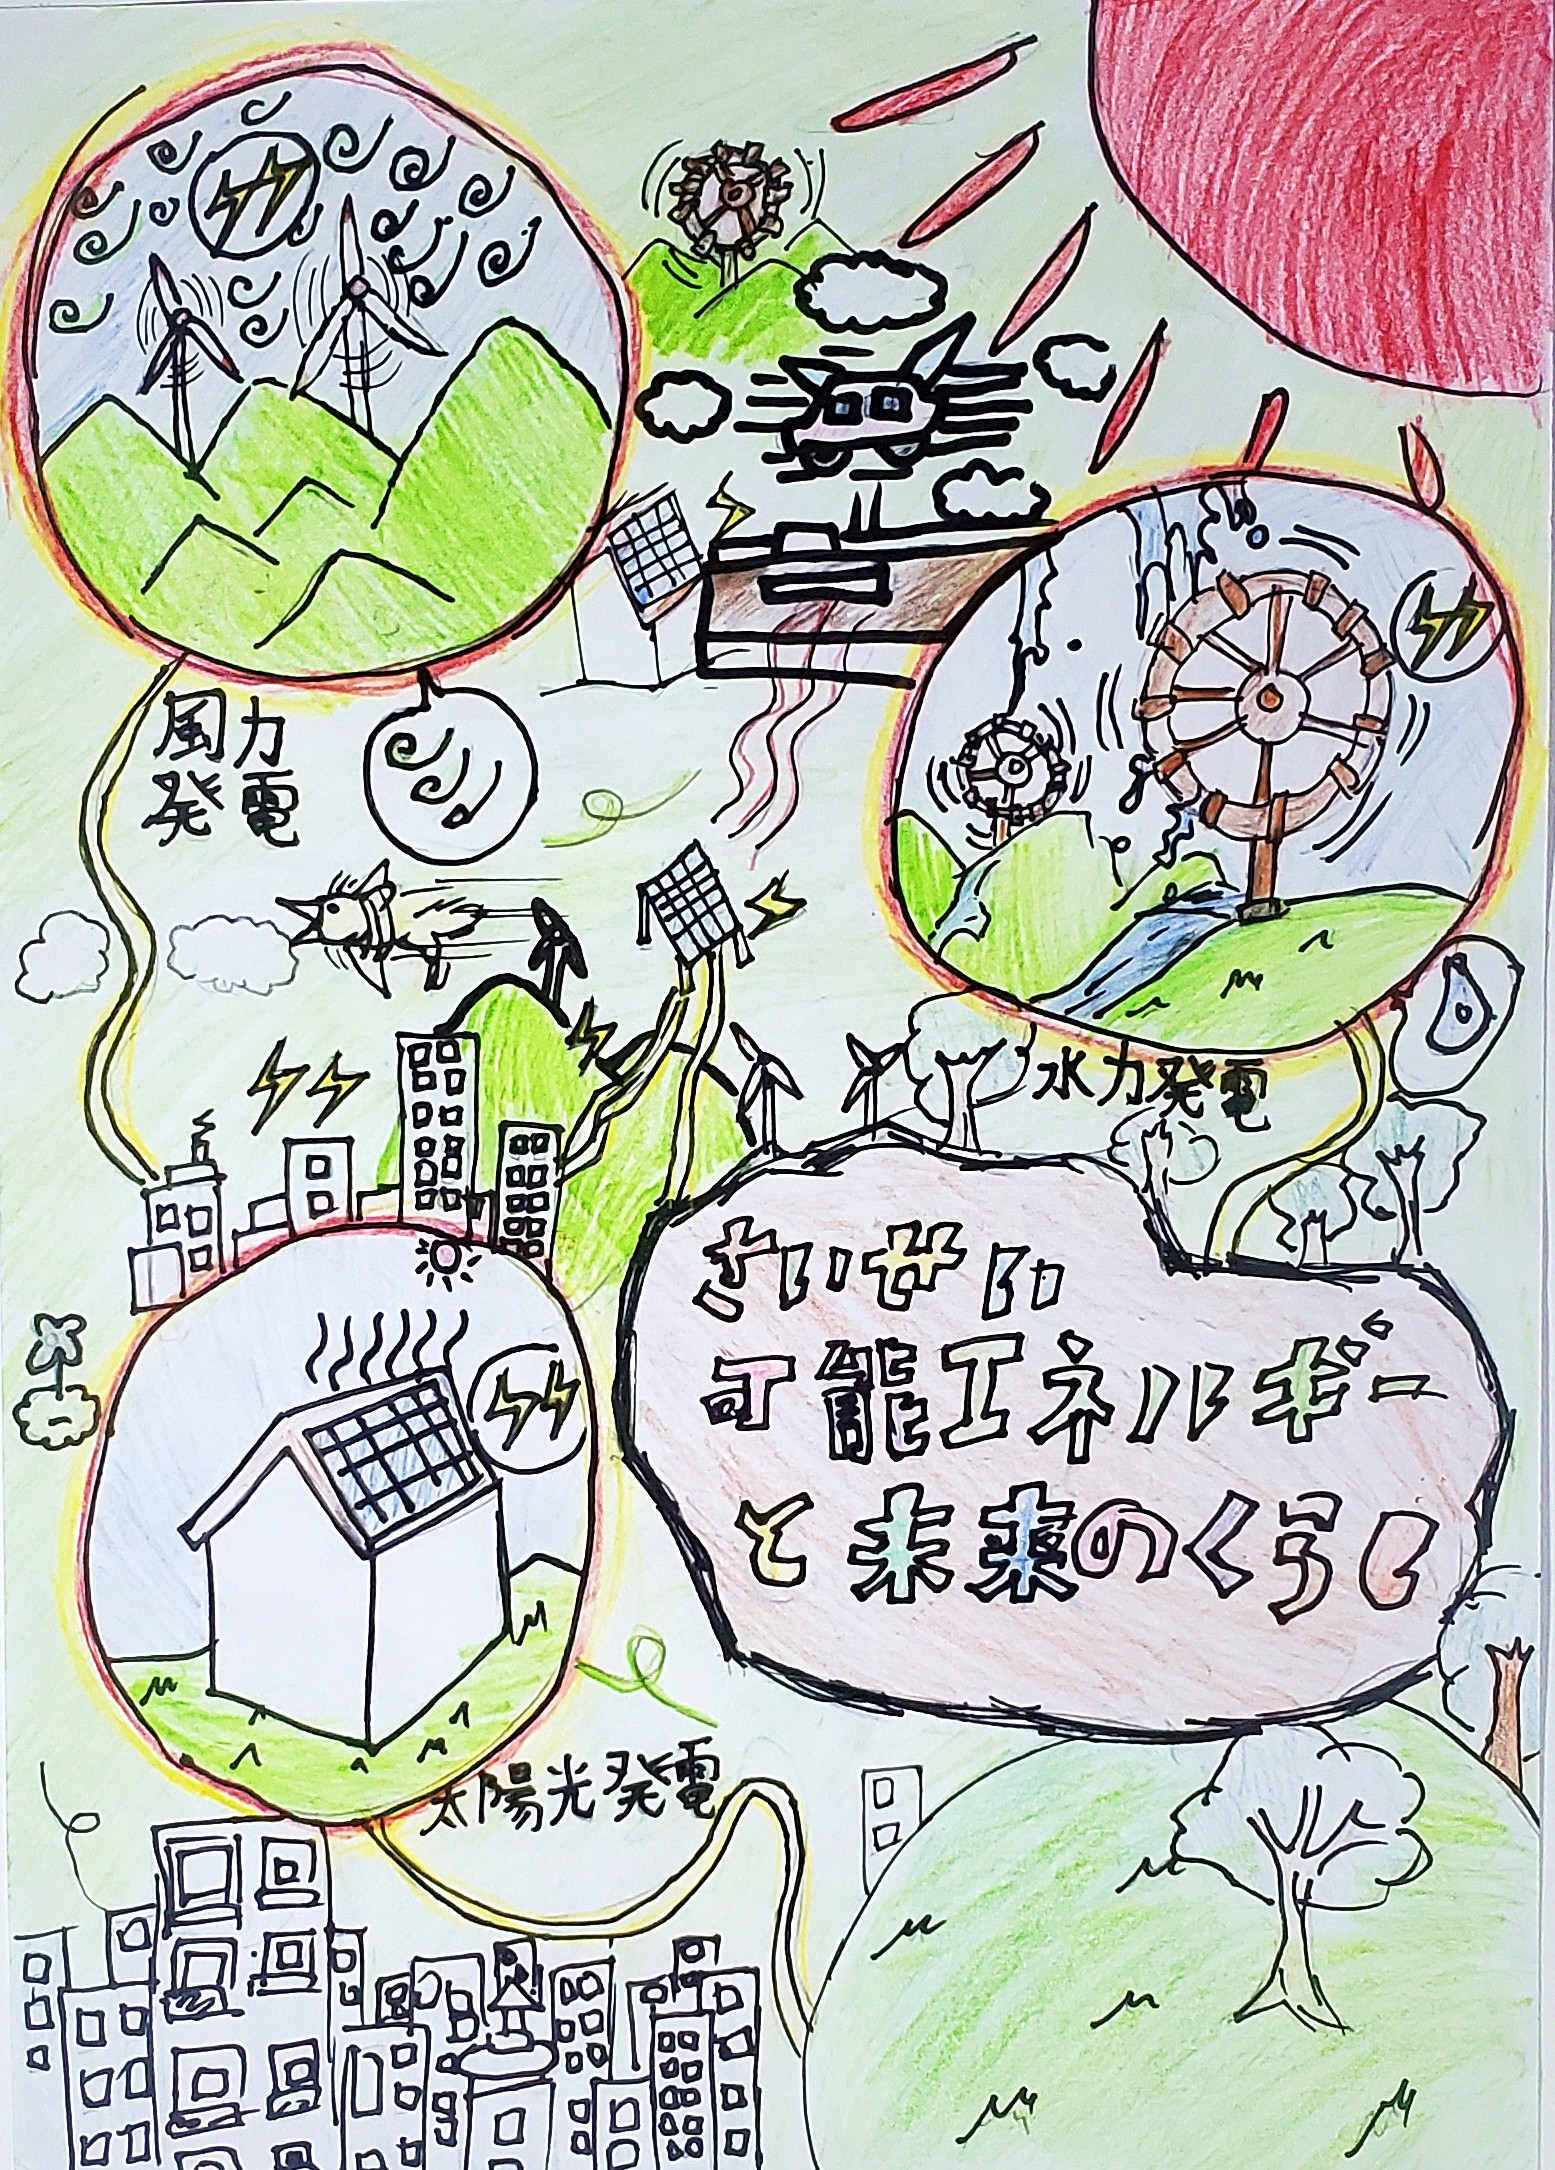 風力
発電
水力発電
さいせい
可能エネルギー
と未来のくらし
太陽光発電